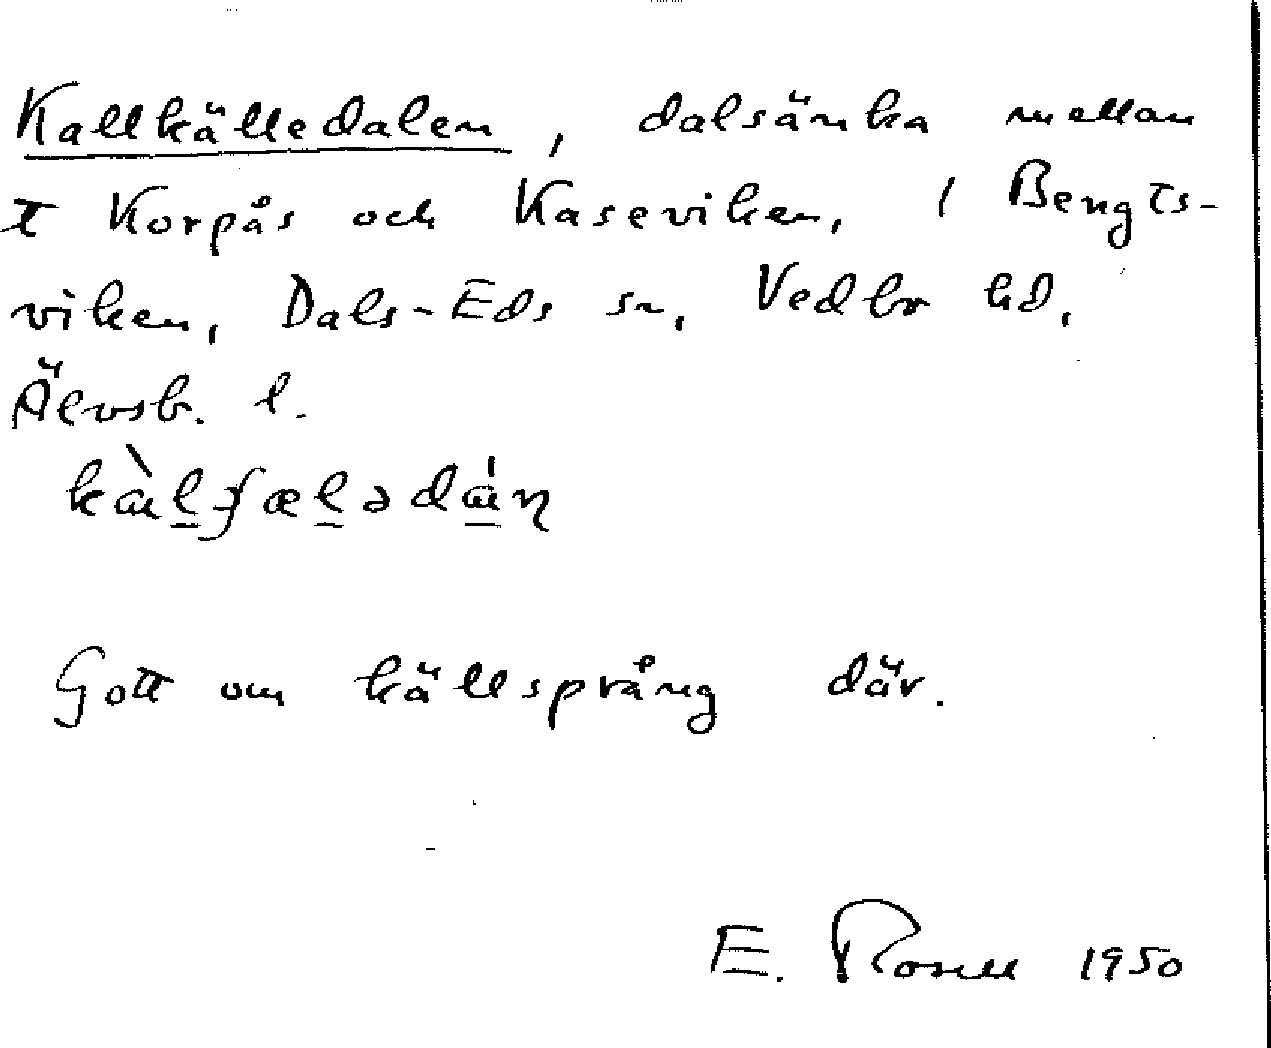 Kallkälledalen, dalsänka mellan
t Korpås och Kaseviken, i Bengts-
viken, Dals-Eds sn, Vedbo hd,
Älvsb. l.
Gott om källsprång där.
E. Rosell 1950